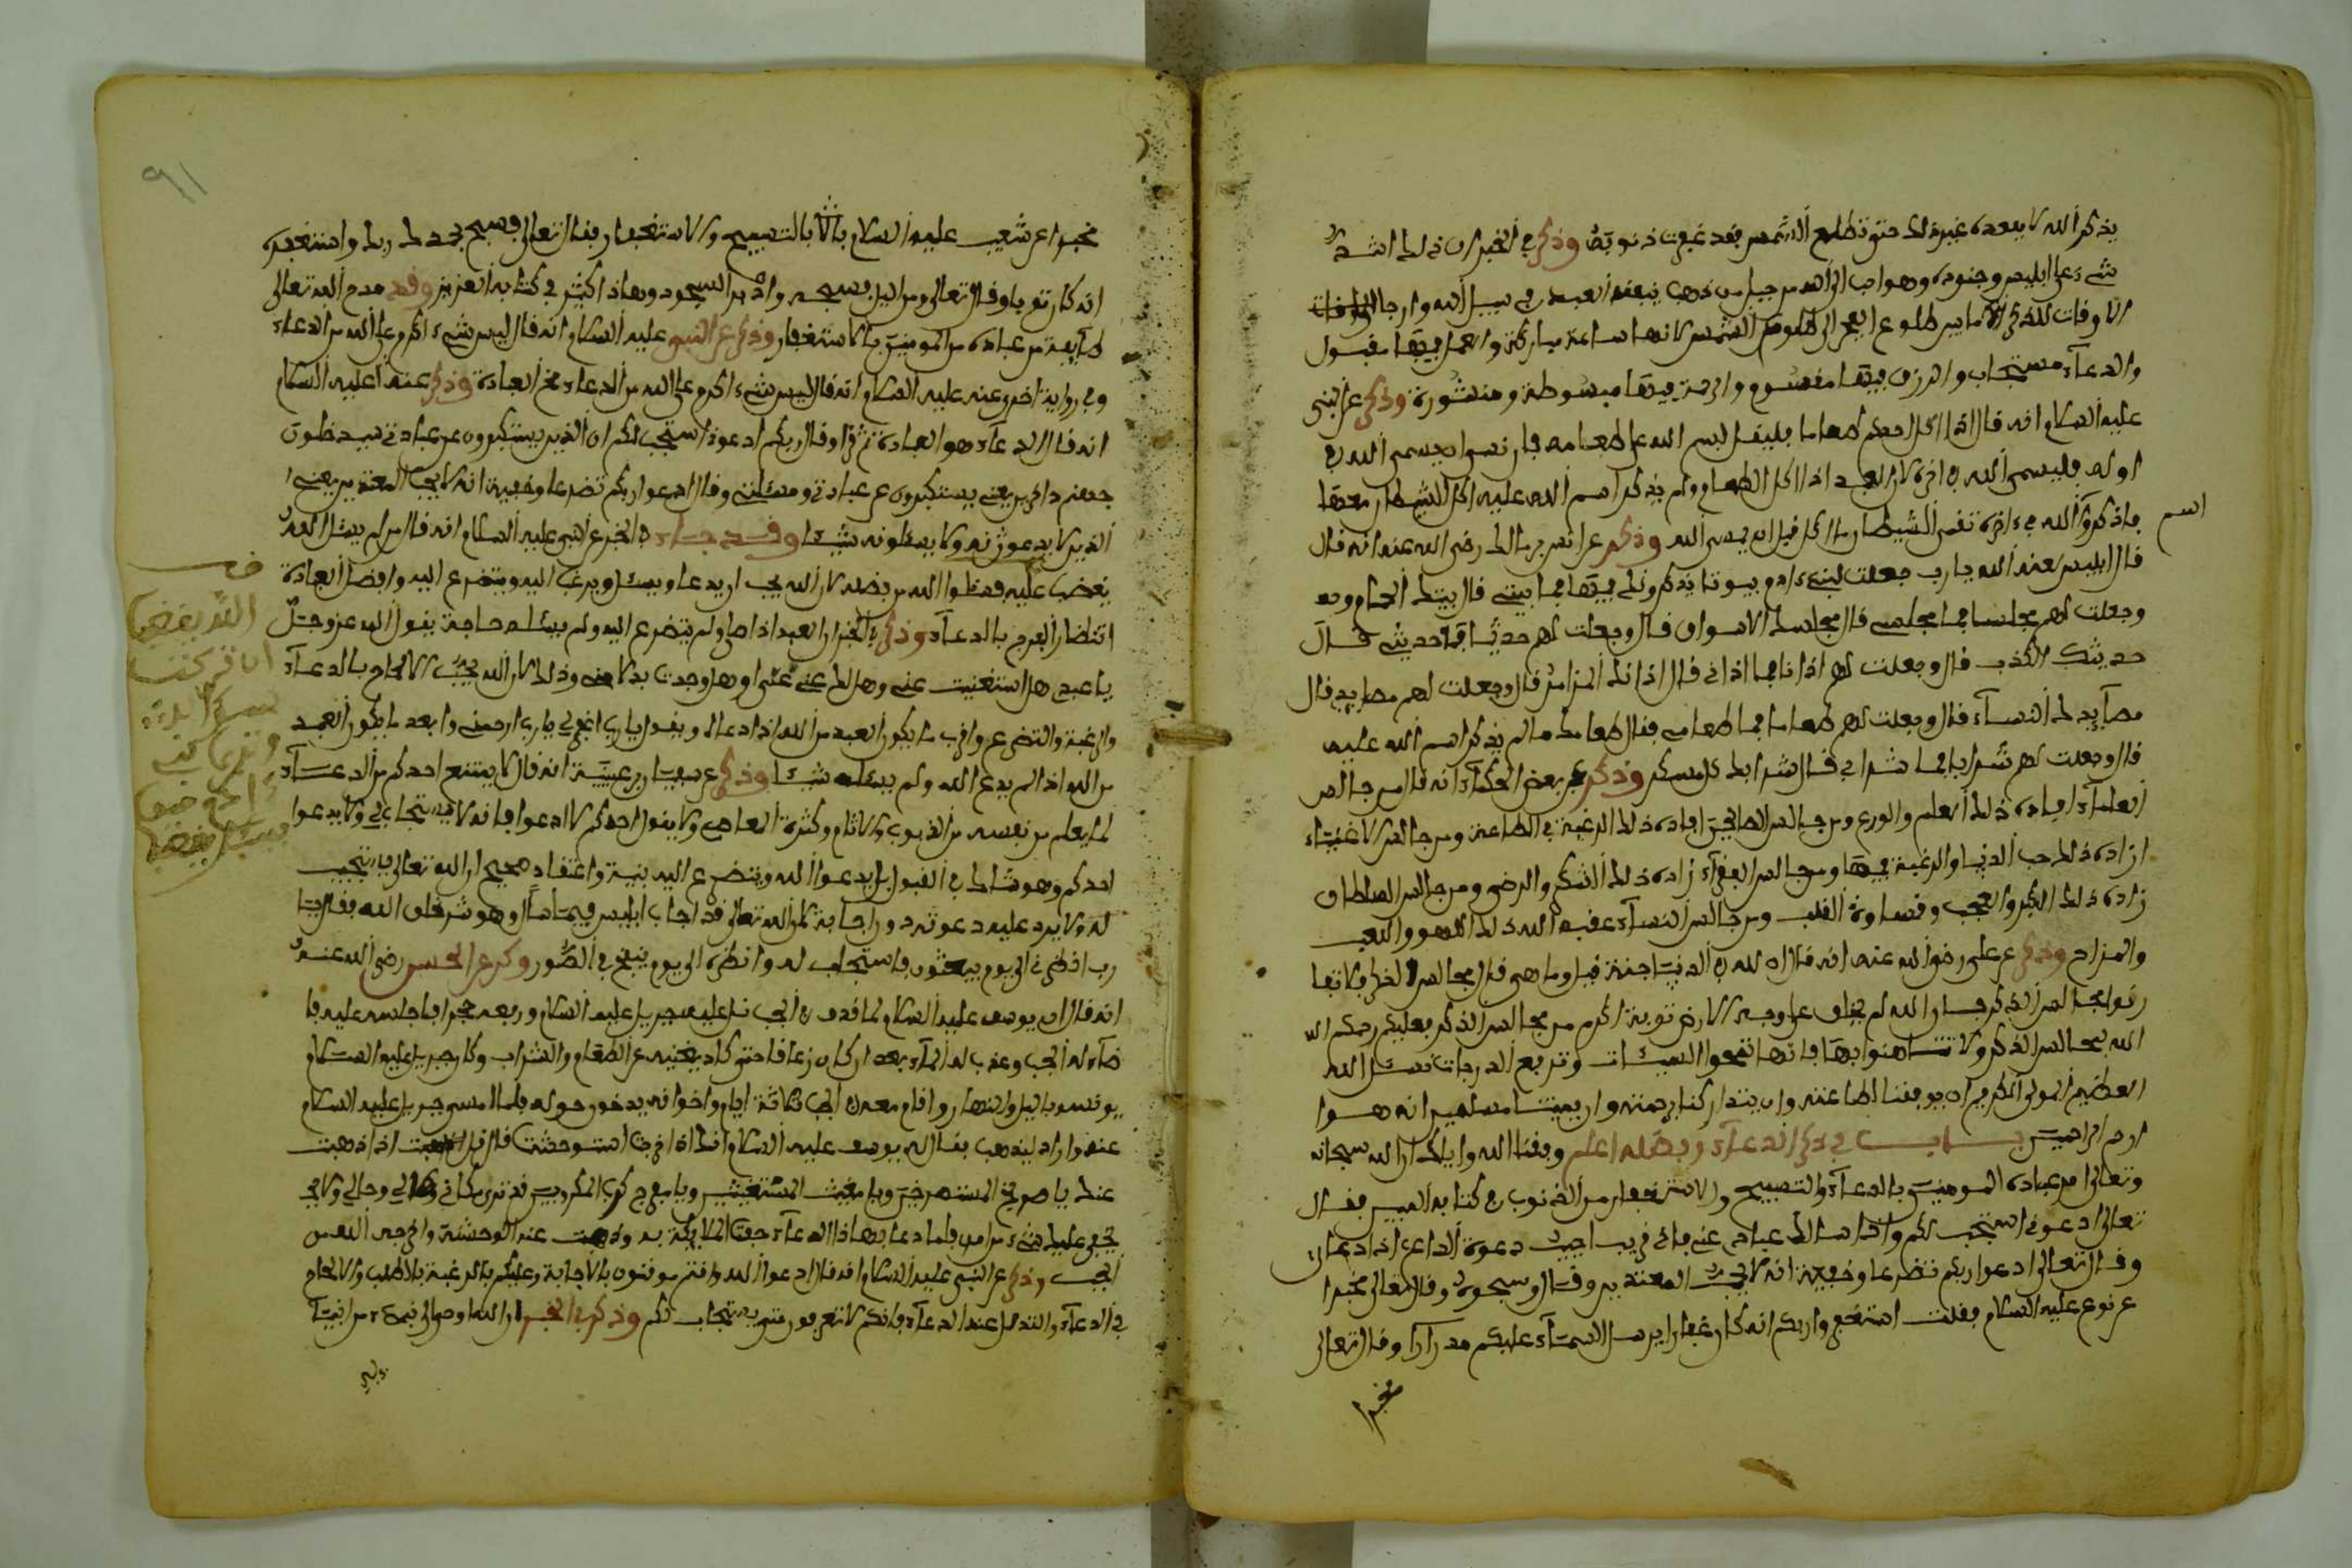 يذكر الله لا يبعده غيره لك حتى تطلع الشمس فقد غفرت ذنوبه وذكر في الخبر ان ذلك اشد
شيء على ابليس وجنوده وهو احب الى الله من جبل من ذهب ينفقه العبد في سبيل الله وارجا الاوقات
الاوقات للذكر ما بين طلوع الفجر الى طلوع الشمس لانها ساعة مباركة والعمل فيها مقبول
والدعاء مستجاب والرزق فيها مقسوم والرحمة فيها مبسوطة ومنشورة وذكر عن النبي
عليه السلام انه قال اذا اكل احدكم طعاما فليقل بسم الله على طعامه فان نسي ان يسمى الله في
اوله فليسمى الله في اخره لان العبد اذا اكل الطعام ولم يذكر اسم الله عليه اكل الشيطان معه
اسم
فاذكروا الله في اخره تقى الشيطان ما اكل قبل ان يسمى الله وذكر عن انس بن مالك رضي الله عنه انه قال
قال ابليس لعنه الله يا رب جعلت لبني ءادم بيوتا يذكرونك فيها فما بيتي قال بيتك الحمام
وجعلت لهم مجالسا فما مجلسي قال مجلسك الاسواق قال وجعلت لهم حديثا فما حديثي قال
حديثك الكذب قال وجعلت لهم اذانا فما اذاني قال اذانك المزامر قال وجعلت لهم مصايد قال
مصايدك النساء قال وجعلت لهم طعاما فما طعامي فقال طعامك ما لم يذكر اسم الله عليه
قال وجعلت لهم شرابا فما شرابي قال شرابك كل مسكر وذكر عن بعض الحكماء انه قال من جالس
العلماء افاده ذلك العلم والورع ومن جالس الصالحين افاده ذلك الرغبة في الطاعة ومن جالس الاغنياء
زاده ذلك حب الدنيا والرغبة فيها ومن جالس الفقراء زاده ذلك الشكر والرضى ومن جالس السلطان
زاده ذلك الكبر والعجب وقساوة القلب ومن جالس النساء عقبه الله ذلك اللهو واللعب
والمزاح وذكر عن علي رضي الله عنه انه قال ان لله في الدنيا جنة قيل وما هي قال مجالس الذكر فلا تفا
رقوا مجالس الذكر فان الله لم يخلق على وجه الارض توبة اكرم من مجالس الذكر فعليكم رحمكم الله
الله بمجالس الذكر ولا تتهاونوا بها فانها تمحوا السيئات وترفع الدرجات نسئل الله
العظيم المولى الكريم ان يوفقنا لطاعته وان يتداركنا برحمته وان يميتنا مسلمين انه هو
ارحم الراحمين باب في ذكر الدعاء وفضله اعلم وفقنا الله واياك ان الله سبحانه
وتعالى امر عباده المومنين بالدعاء والتسبيح والاستغفار من الذنوب في كتابه المبين فقال
تعالى ادعوني استجب لكم واذا سالك عبادي عني فاني قريب اجيب دعوة الداعي اذا دعاني
وقال تعالى ادعوا ربكم تضرعا وخفية انه لا يحب المعتدين وقال وسبحوه وقال تعالى مخبرا
عن نوح عليه السلام فقلت استغفروا ربكم انه كان غفارا يرسل السماء عليكم مدرارا وقال تعالى
مخبرا
٩١
مخبرا عن شعيب عليه السلام بالتسبيح والاستغفار فقال تعالى فسبح بحمد ربك واستغفره
انه كان توابا وقال تعالى ومن اليل فسبحه وادبار السجود وهذا كثير في كتابه العزيز وقد مدح الله تعالى
طايفة من عباده من المومنين بالاستغفار وذكر عن النبي عليه السلام انه قال ليس شيء اكرم على الله من الدعاء
وفي رواية اخرى عنه عليه السلام انه قال ليس شيء اكرم على الله من الدعاء مخ العبادة وذكر عنه عليه السلام
انه قال الدعاء هو العبادة ثم قرا وقال ربكم ادعوني استجب لكم ان الذين يستكبرون عن عبادتي سيدخلون
جهنم داخرين يعني يستكبرون عن عبادتي ومسئلتي وقال ادعوا ربكم تضرعا وخفية انه لا يحب المعتدين يعني
الذين لا يدعونه ولا يسئلونه شيئا وقد جاء في الخبر عن النبي عليه السلام انه قال من لم يسئل الله
يغضب عليه فسئلوا الله من فضله لان الله يحب ان يدعا ويسئل ويرغب اليه ويتضرع اليه وافضل العبادة
انتظار الفرج بالدعاء وذكر في الخبر ان العبد اذا صلى ولم يتضرع اليه ولم يسئله حاجة يقول الله عز وجل
يا عبدي هل استغنيت عني وهل لك عني غنى او هل وجدت بدلا مني وذلك لان الله يحب الالحاح بالدعاء
والرغبة والتضرع واقرب ما يكون العبد من الله اذا دعاه ويقول يا رب اغفر لي يا رب ارحمني وابعد ما يكون العبد
من الله اذا لم يدع الله ولم يسئله شيئا وذكر عن سفيان بن عيينة انه قال لا يمتنع احدكم من الدعاء
لما يعلم من نفسه من الذنوب والاثام وكثرة المعاصي ولا يقول احدكم لا ادعوا فانه لا يستجاب لي ولا يدعوا
احدكم وهو شاك في القبول بل يدعوا الله ويتضرع اليه بنية واعتقاد صحيح ان الله تعالى يستجيب
له ولا يرد عليه دعوته دون اجابة لان الله تعالى قد اجاب ابليس فيما سال وهو شر خلق الله فقال يا
رب انظرني الى يوم يبعثون فاستجاب له وانظره الى يوم ينفخ في الصور وذكر عن الحسن رضي الله عنه
انه قال ان يوسف عليه السلام لما قذف في الجب نزل عليه جبريل عليه السلام ورفعه حجرا فاجلسه عليه فا
ضاء له الجب وعذب له الماء بعد ان كان زعاقا حتى كان يغنيه عن الطعام والشراب وكان جبريل عليه السلام
يونسه باليل والنهار واقام معه في الجب ثلاثة ايام واخوانه يدخرون حوله فلما امسى جبريل عليه السلام
عنه واراد ليذهب فقال له يوسف عليه السلام انك اذا خرجت استوحشت قال قل اذا ذهبت
عندك يا صريخ المستصرخين ويا مغيث المستغيثين ويا مفرج كرب المكروبين قد ترى مكاني وحالي ولا
يخفى عليك شيء من امري فلما دعا بهذا الدعاء حفت الملايكة به وذهبت عنه الوحشة واخرجه الله من
الجب وذكر عن النبي عليه السلام انه قال ادعوا الله وانتم موقنون بالاجابة وعليكم بالرغبة بالطلب والالحاح
في الدعاء والتذلل عند الدعاء فانكم لا تعرفون متى يستجاب لكم وذكر في الخبر ان الله اوحى الى نبي من انبياء
الله يغضب
ان تركت
سؤاله